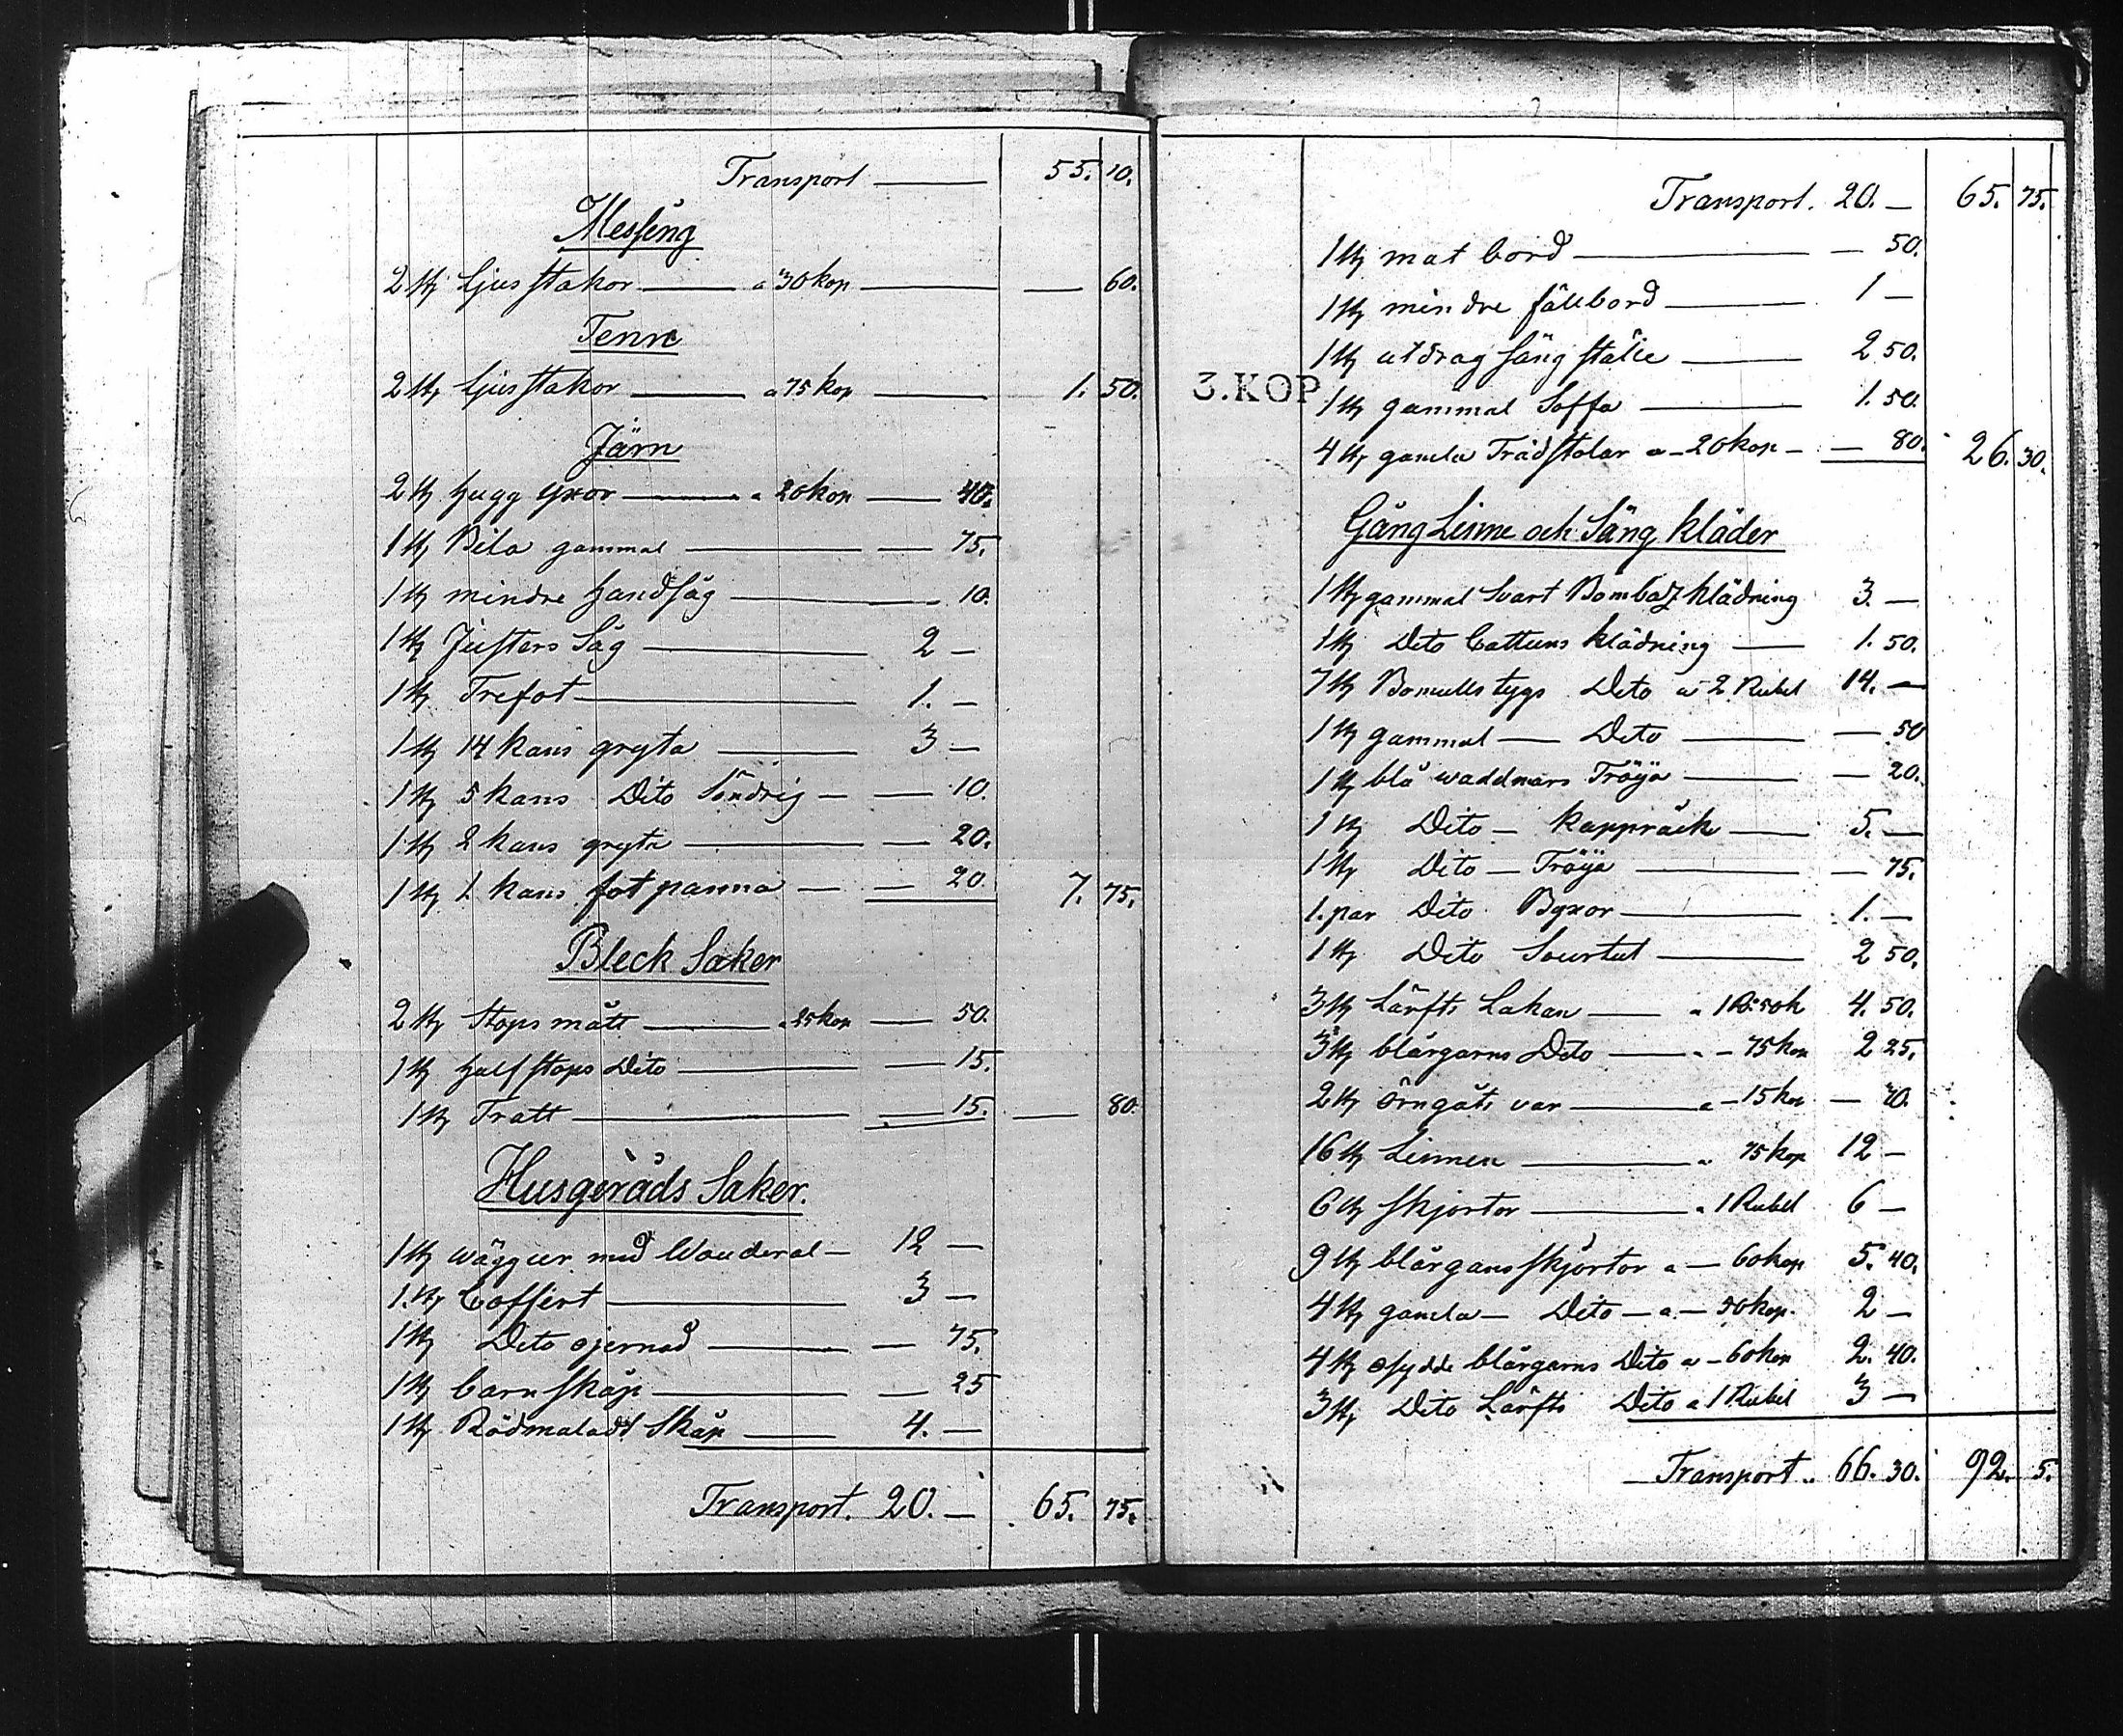 Transport — 55. 10.
Messing
2 st Ljus stakor — a 30 kop — — 60.
Tenn
2 st Ljus stakor — a 75 kop — 1. 50.
Järn
2 st hugg yxor — a 20 kop — 40.
1 st Bila gammal — — 75.
1 st mindre handsåg — 10.
1 st Justers Såg — 2 —
1 st Trefot — 1. —
1 st 14 kans gryta — 3 —
1 st 5 kans Dito Söndrig — — 10.
1 st 2 kans gryta — — 20.
1 st 1 kans fot panna — — 20. 7. 75.
Bleck Saker
2 st Stops mått — a 25 kop — 50.
1 st half stops Dito — — 15.
1 st Tratt — — 15. — 80.
Husgeråds Saker.
1 st wäggur med — 12 —
1. st Coffert — 3 —
1 st Dito ojernad — — 75.
1 st barn skåp — — 25
1 st Rödmaladt Skåp — 4. —
Transport. 20. — 65. 75.
Transport. 20. — 65. 75.
1 st mat bord — — 50.
1 st mindre fällbord — 1 —
1 st utdrag säng ställe — 2 50.
3. KOP
1 st gammal Soffa — 1. 50.
4 st gamla Trädstolar a — 20 kop — — 80. 26. 30.
Gång Linne och Säng kläder
1 st gammal Svart Bombaz klädning 3. —
1 st Dito Cattuns klädning — 1. 50.
7 st Bomulls tygs Dito a 2 Rubel 14. —
1 st gammal — Dito — — 50
1 st blå waddmars Tröja — — 20.
1 st Dito — kappråck — 5. —
1 st Dito — Tröja — — 75.
1. par Dito Byxor — 1. —
1 st Dito Sourtut — 2 50.
3 st Lärfts Lakan — a 1 R: 50 k 4. 50.
3 st blårgarns Dito — a — 75 kop 2 25.
2 st örngåts var — a — 15 kop — 30.
16 st Linnen — a 75 kop 12 —
6 st Skjortor — a 1 Rubel 6 —
9 st blårgans skjortor a — 60 kop 5. 40.
4 st gamla — Dito — a — 50 kop. 2 —
4 st osydde blårgarns Dito a — 60 kop 2. 40.
3 st Dito Lärfts Dito a 1 Rubel 3 —
Transport .. 66. 30. 92. 5.